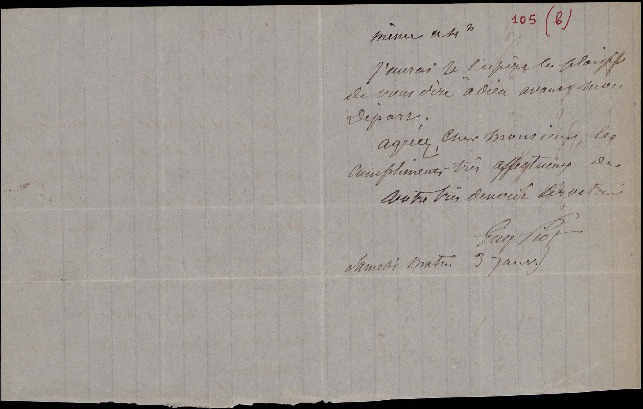 105 (b)
même
J'aurai je l'espère le plaisir
de vous dire adieu avant mon
départ.
agréez, cher monsieur, les
compliments très affectueux de
votre très dévoué serviteur
Eug Piot
Samedi matin 3 janv.